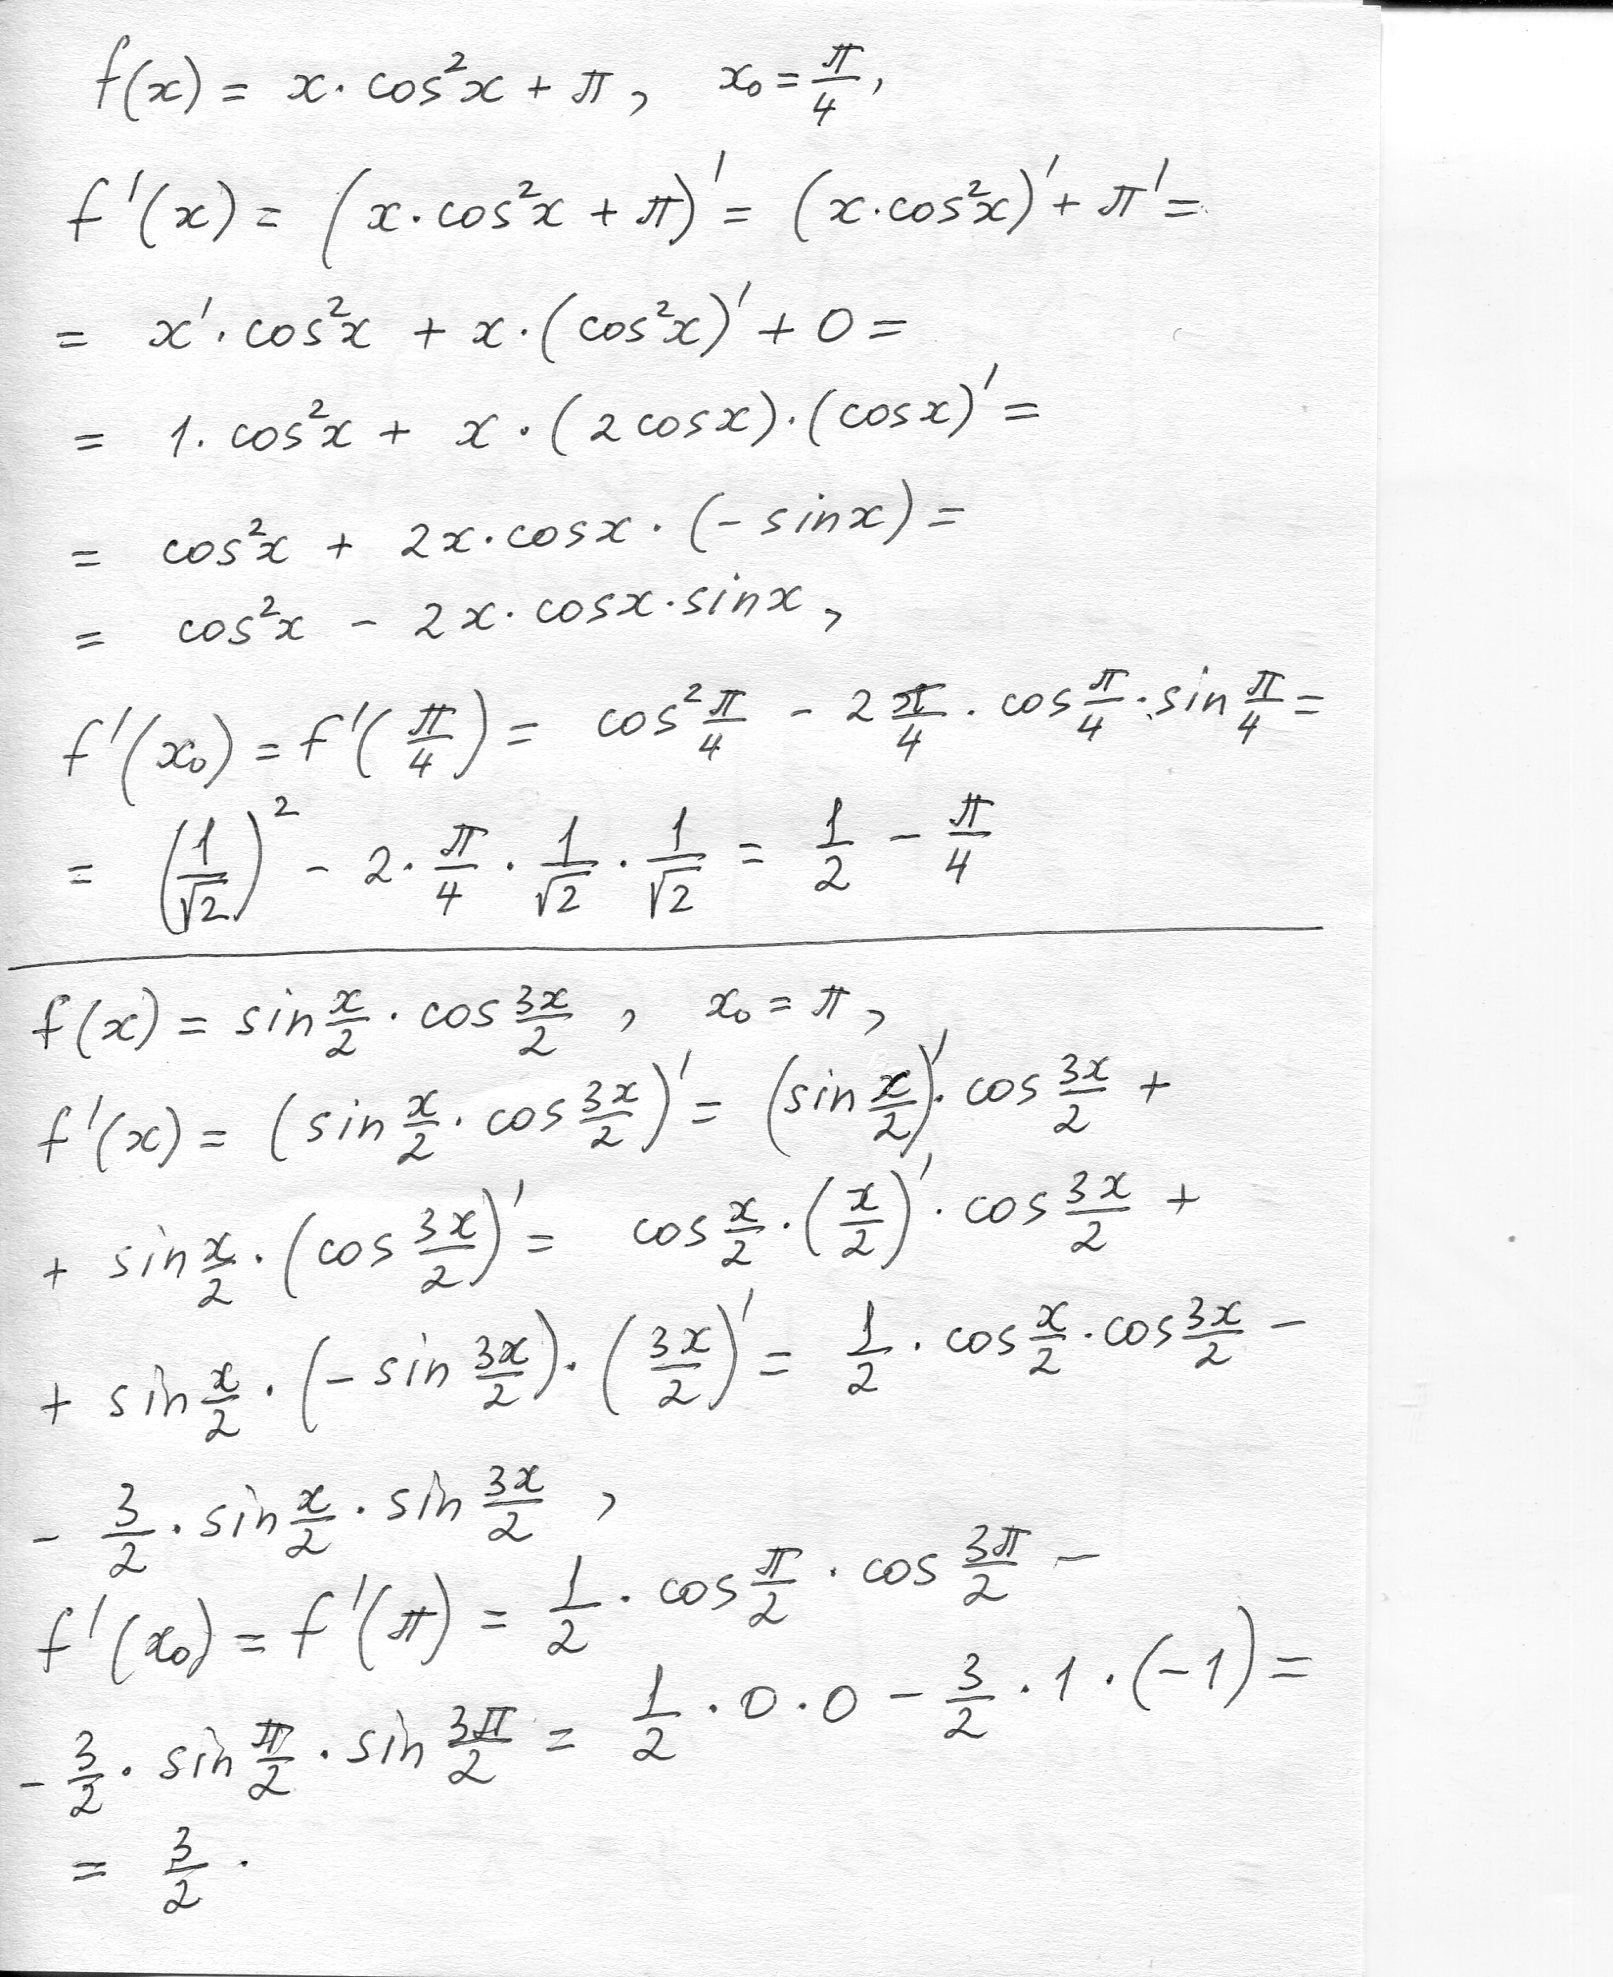 f(x) = x · cos²x + π, x₀ = π/4,
f'(x) = (x·cos²x + π)' = (x·cos²x)' + π' =
= x' · cos²x + x · (cos²x)' + 0 =
= 1 · cos²x + x · (2cosx) · (cosx)' =
= cos²x + 2x · cosx · (-sinx) =
= cos²x - 2x · cosx · sinx,
f'(x₀) = f'(π/4) = cos² π/4 - 2 π/4 · cos π/4 · sin π/4 =
= (1/√2)² - 2 · π/4 · 1/√2 · 1/√2 = 1/2 - π/4
f(x) = sin x/2 · cos 3x/2, x₀ = π,
f'(x) = (sin x/2 · cos 3x/2)' = (sin x/2)' · cos 3x/2 +
+ sin x/2 · (cos 3x/2)' = cos x/2 · (x/2)' · cos 3x/2 +
+ sin x/2 · (-sin 3x/2) · (3x/2)' = 1/2 · cos x/2 · cos 3x/2 -
- 3/2 · sin x/2 · sin 3x/2,
f'(x₀) = f'(π) = 1/2 · cos π/2 · cos 3π/2 -
- 3/2 · sin π/2 · sin 3π/2 = 1/2 · 0 · 0 - 3/2 · 1 · (-1) =
= 3/2 .